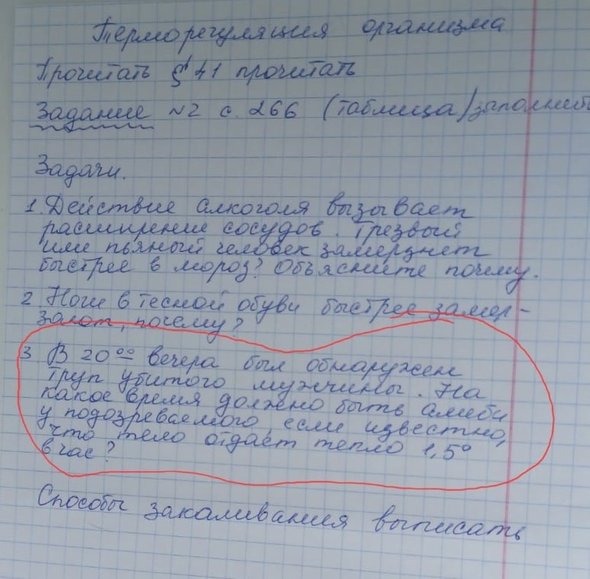 Терморегуляция организма
Прочитать § 41 прочитать
Задание №2 с. 266 (таблица) заполнить
Задачи.
1. Действие алкоголя вызывает
расширение сосудов. Трезвый
или пьяный человек замерзнет
быстрее в мороз? Объясните почему.
2 Ноги в тесной обуви быстрее замер-
зают, почему?
3 В 20⁰⁰ вечера был обнаружен
труп убитого мужчины. На
какое время должно быть алиби
у подозреваемого, если известно,
что тело отдает тепло 1,5°
в час?
Способы закаливания выписать